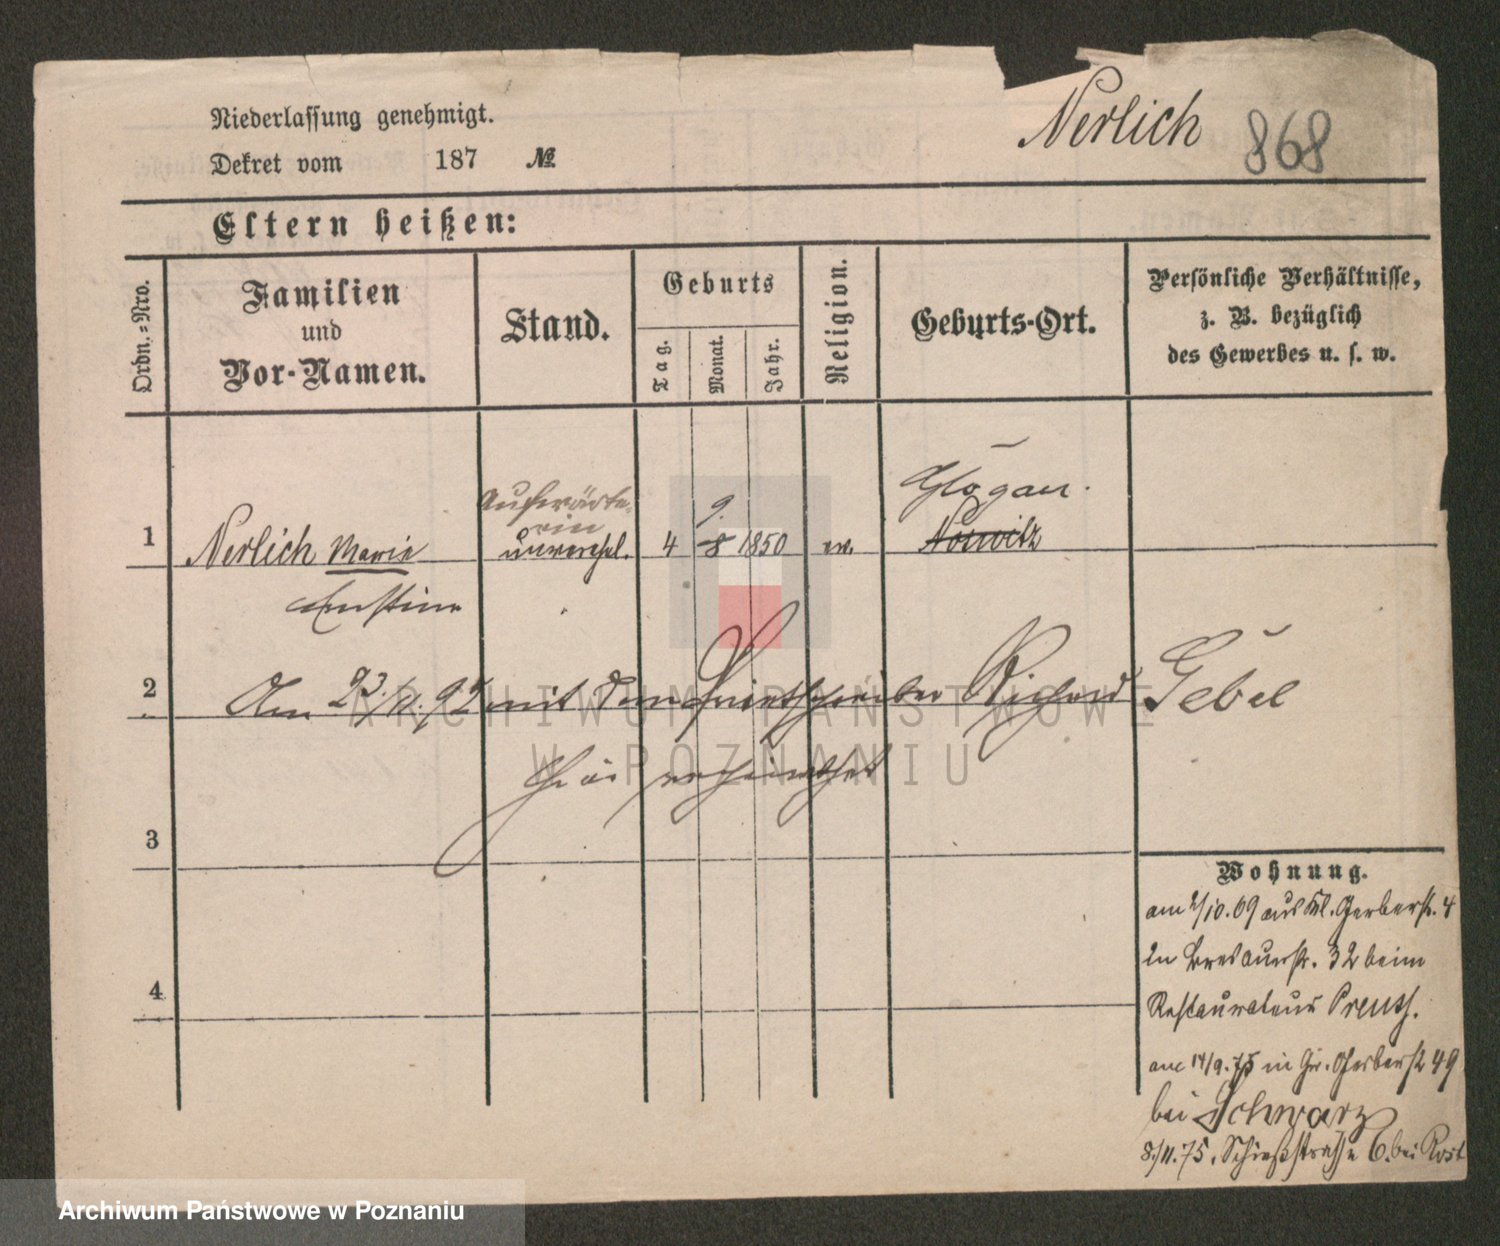 Niederlassung genehmigt.
Dekret vom 187 №
Nerlich 868
Eltern heißen:
Ordn.-Nro.
Familien
und
Vor-Namen.
Stand.
Geburts
Tag.
Monat.
Jahr.
Religion.
Geburts-Ort.
Persönliche Verhältnisse,
z. B. bezüglich
des Gewerbes u. s. w.
Aufwärte-
rin
9.
Glogau.
1 Nerlich Marie unverehel. 4 8 1850 ev.
Ernstine
2 Am 23./11. 92 mit dem Richard Gebel
hier verheirathet
3
4
Wohnung.
am 2/10. 69 aus Kl. Gerberstr. 4
in Breslauerstr. 32 beim
Restaurateur
am 14/9. 75 in Gr. Gerberstr 49
bei Schwarz
8/11. 75. Schießstrasse 6. bei Rost
ARCHIWUM PAŃSTWOWE
W POZNANIU
Archiwum Państwowe w Poznaniu